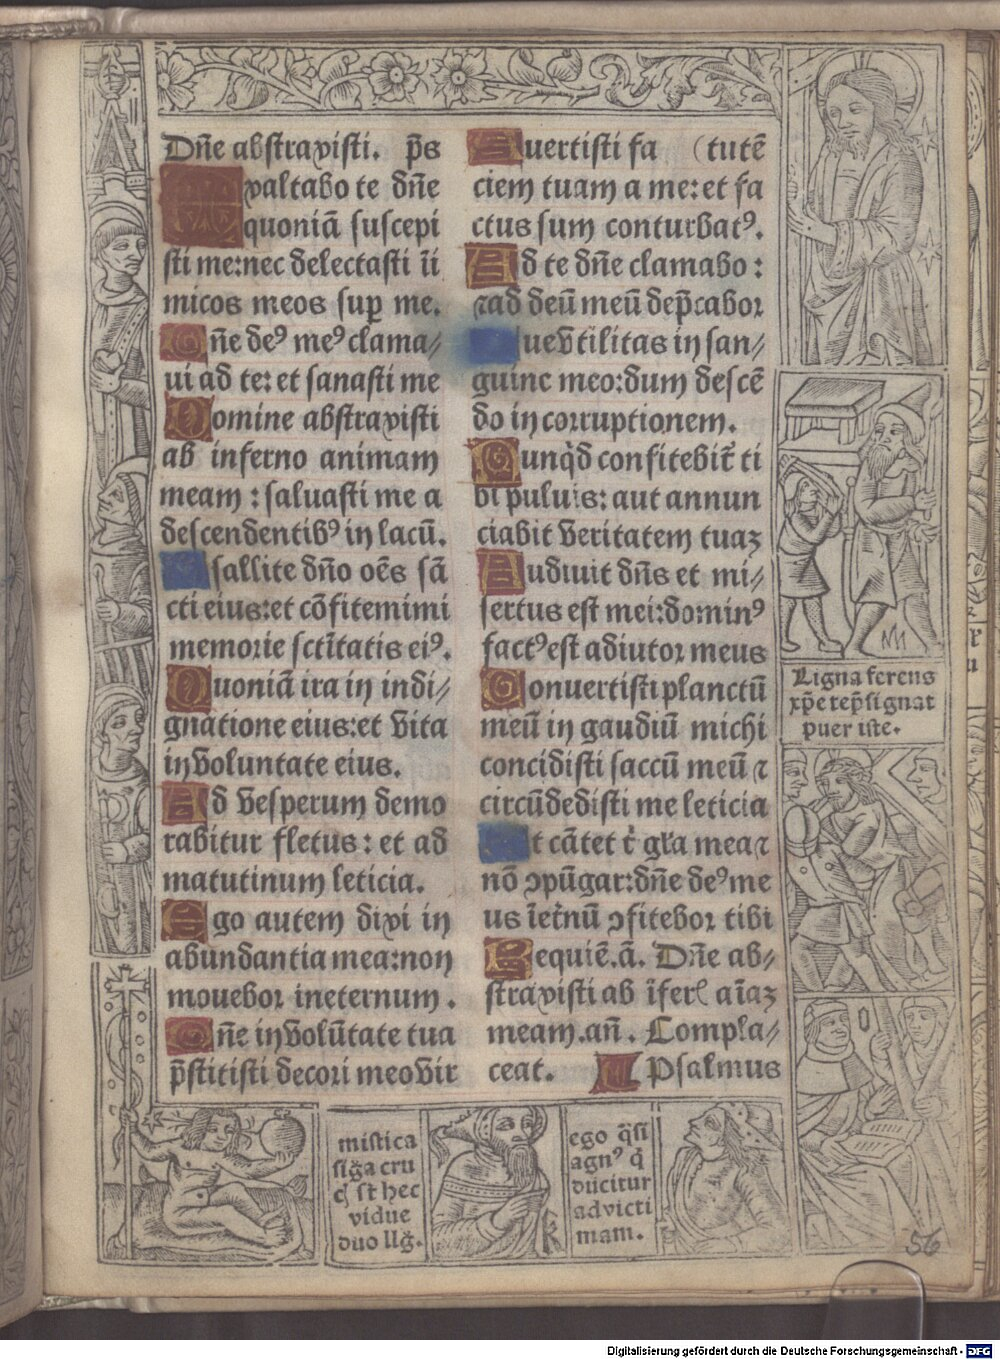 Dñe abstraxisti. p̄s
Exaltabo te dñe
quoniā suscepi
sti me:nec delectasti īi
micos meos suꝑ me.
Dñe deꝰ meꝰ clama/
ui ad te: et sanasti me
Domine abstraxisti
ab inferno animam
meam : saluasti me a
descendentibꝰ in lacū.
Psallite dño oēs sā
cti eius:et cōfitemimi
memorie sctītatis eiꝰ.
Quoniā ira in indi/
gnatione eius:et vita
in voluntate eius.
Ad vesperum demo
rabitur fletus : et ad
matutinum leticia.
Ego autem dixi in
abundantia mea:non
mouebor in eternum .
Dñe in volūtate tua
p̄stitisti decori meo vir
Auertisti fa (tutē
ciem tuam a me:et fa
ctus sum conturbatꝰ.
Ad te dñe clamabo :
⁊ad deū meū dep̄cabor
Que vtilitas in san/
guine meo:dum descē
do in corruptionem.
Nunq̄d confitebit̄ ti
bi puluis: aut annun
ciabit veritatem tuaꝫ
Audiuit dñs et mi/
sertus est mei:dominꝰ
factꝰ est adiutor meus
Conuertisti planctū
meū in gaudiū michi
concidisti saccū meū ⁊
circūdedisti me leticia
Ut cātet t̄ gl̄a mea⁊
nō ↄpūgar:dñe deꝰ me
us īet̄nū ↄfitebor tibi
Requiē.ā. Dñe ab/
straxisti ab īferꝭ aīaꝫ
meam.añ. Compla/
ceat. Psalmus
Ligna ferens
xp̄e te p̄signat
puer iste.
mistica
sig̃a cru
cꝭ st hec
vidue
duo lig̃.
ego q̄si
agnꝰ q̄
ducitur
ad victi
mam.
56
Digitalisierung gefördert durch die Deutsche Forschungsgemeinschaft - DFG